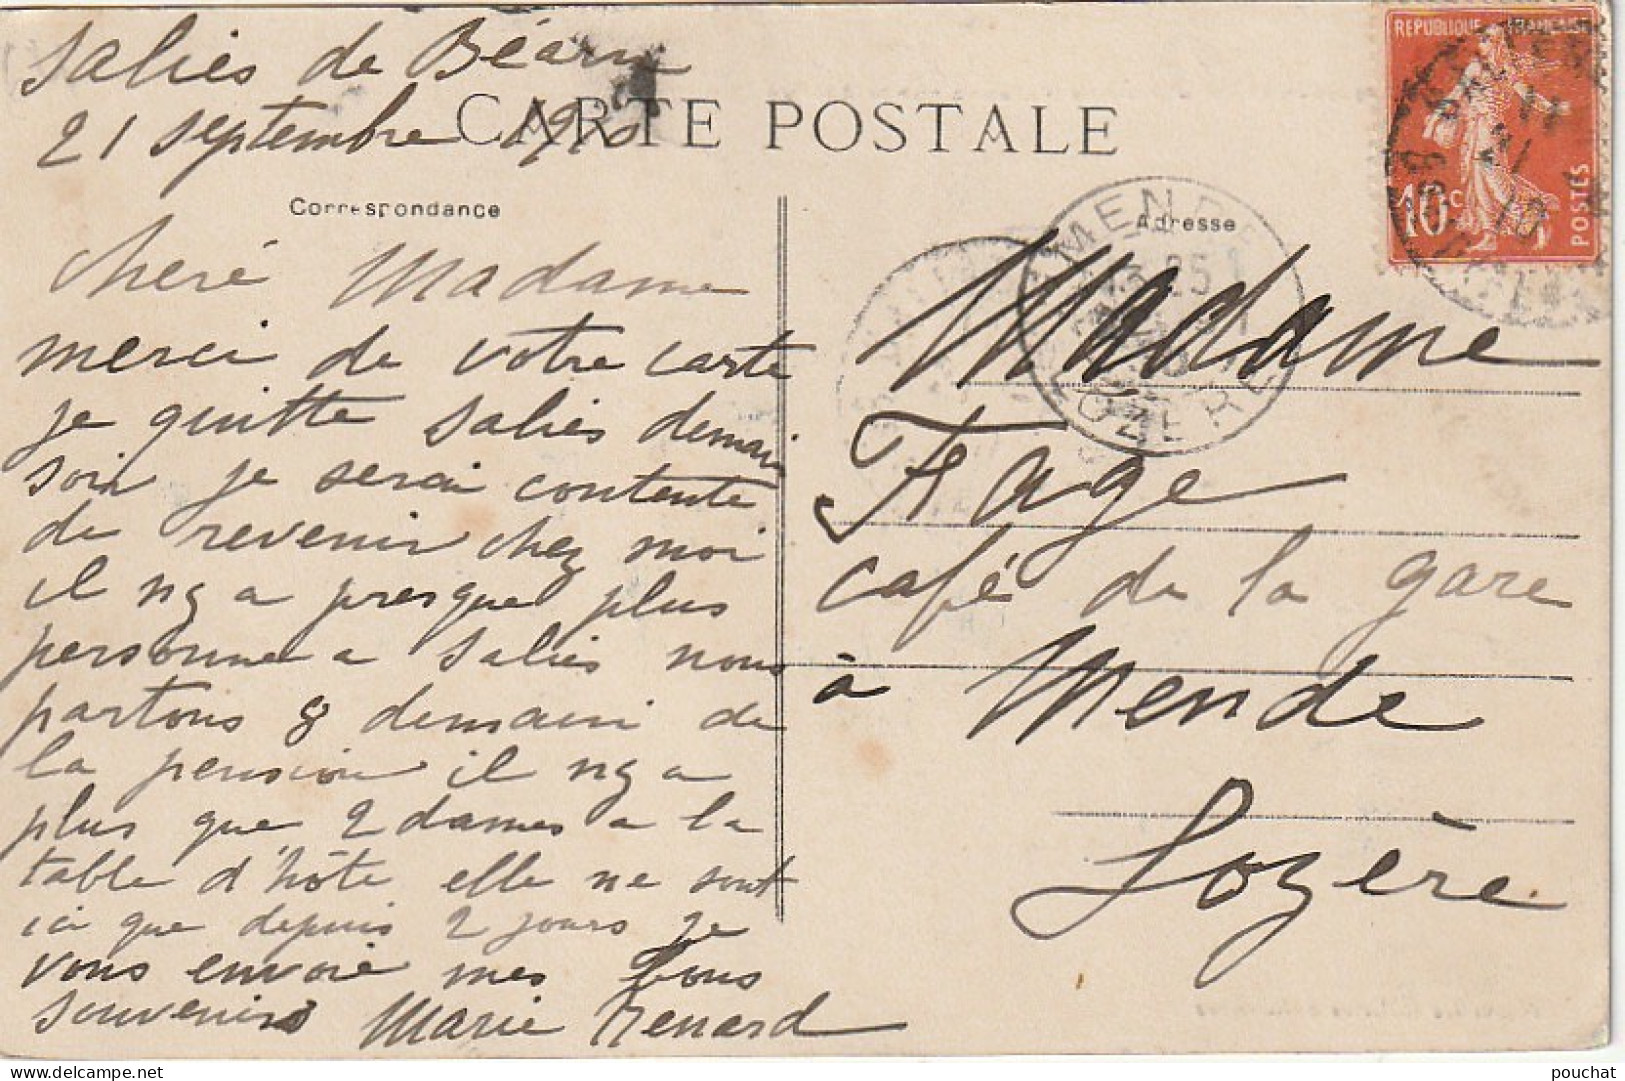 Salies de Béarn
21 septembre 1910
CARTE POSTALE
Correspondance
Adresse
REPUBLIQUE FRANÇAISE
10c
POSTES
MENDE
LOZERE
cheré Madame
merci de votre carte
je quitte Salies demain
soir je serai contente
de revenir chez moi
il n'y a presque plus
personne a Salies nous
partons 8 demain de
la pension il n'y a
plus que 2 dames a la
table d'hôte elle ne sont
ici que depuis 2 jours je
vous envoie mes bons
souvenirs Marie Renard
Madame
Fage
café de la gare
à Mende
Lozère
pouchat